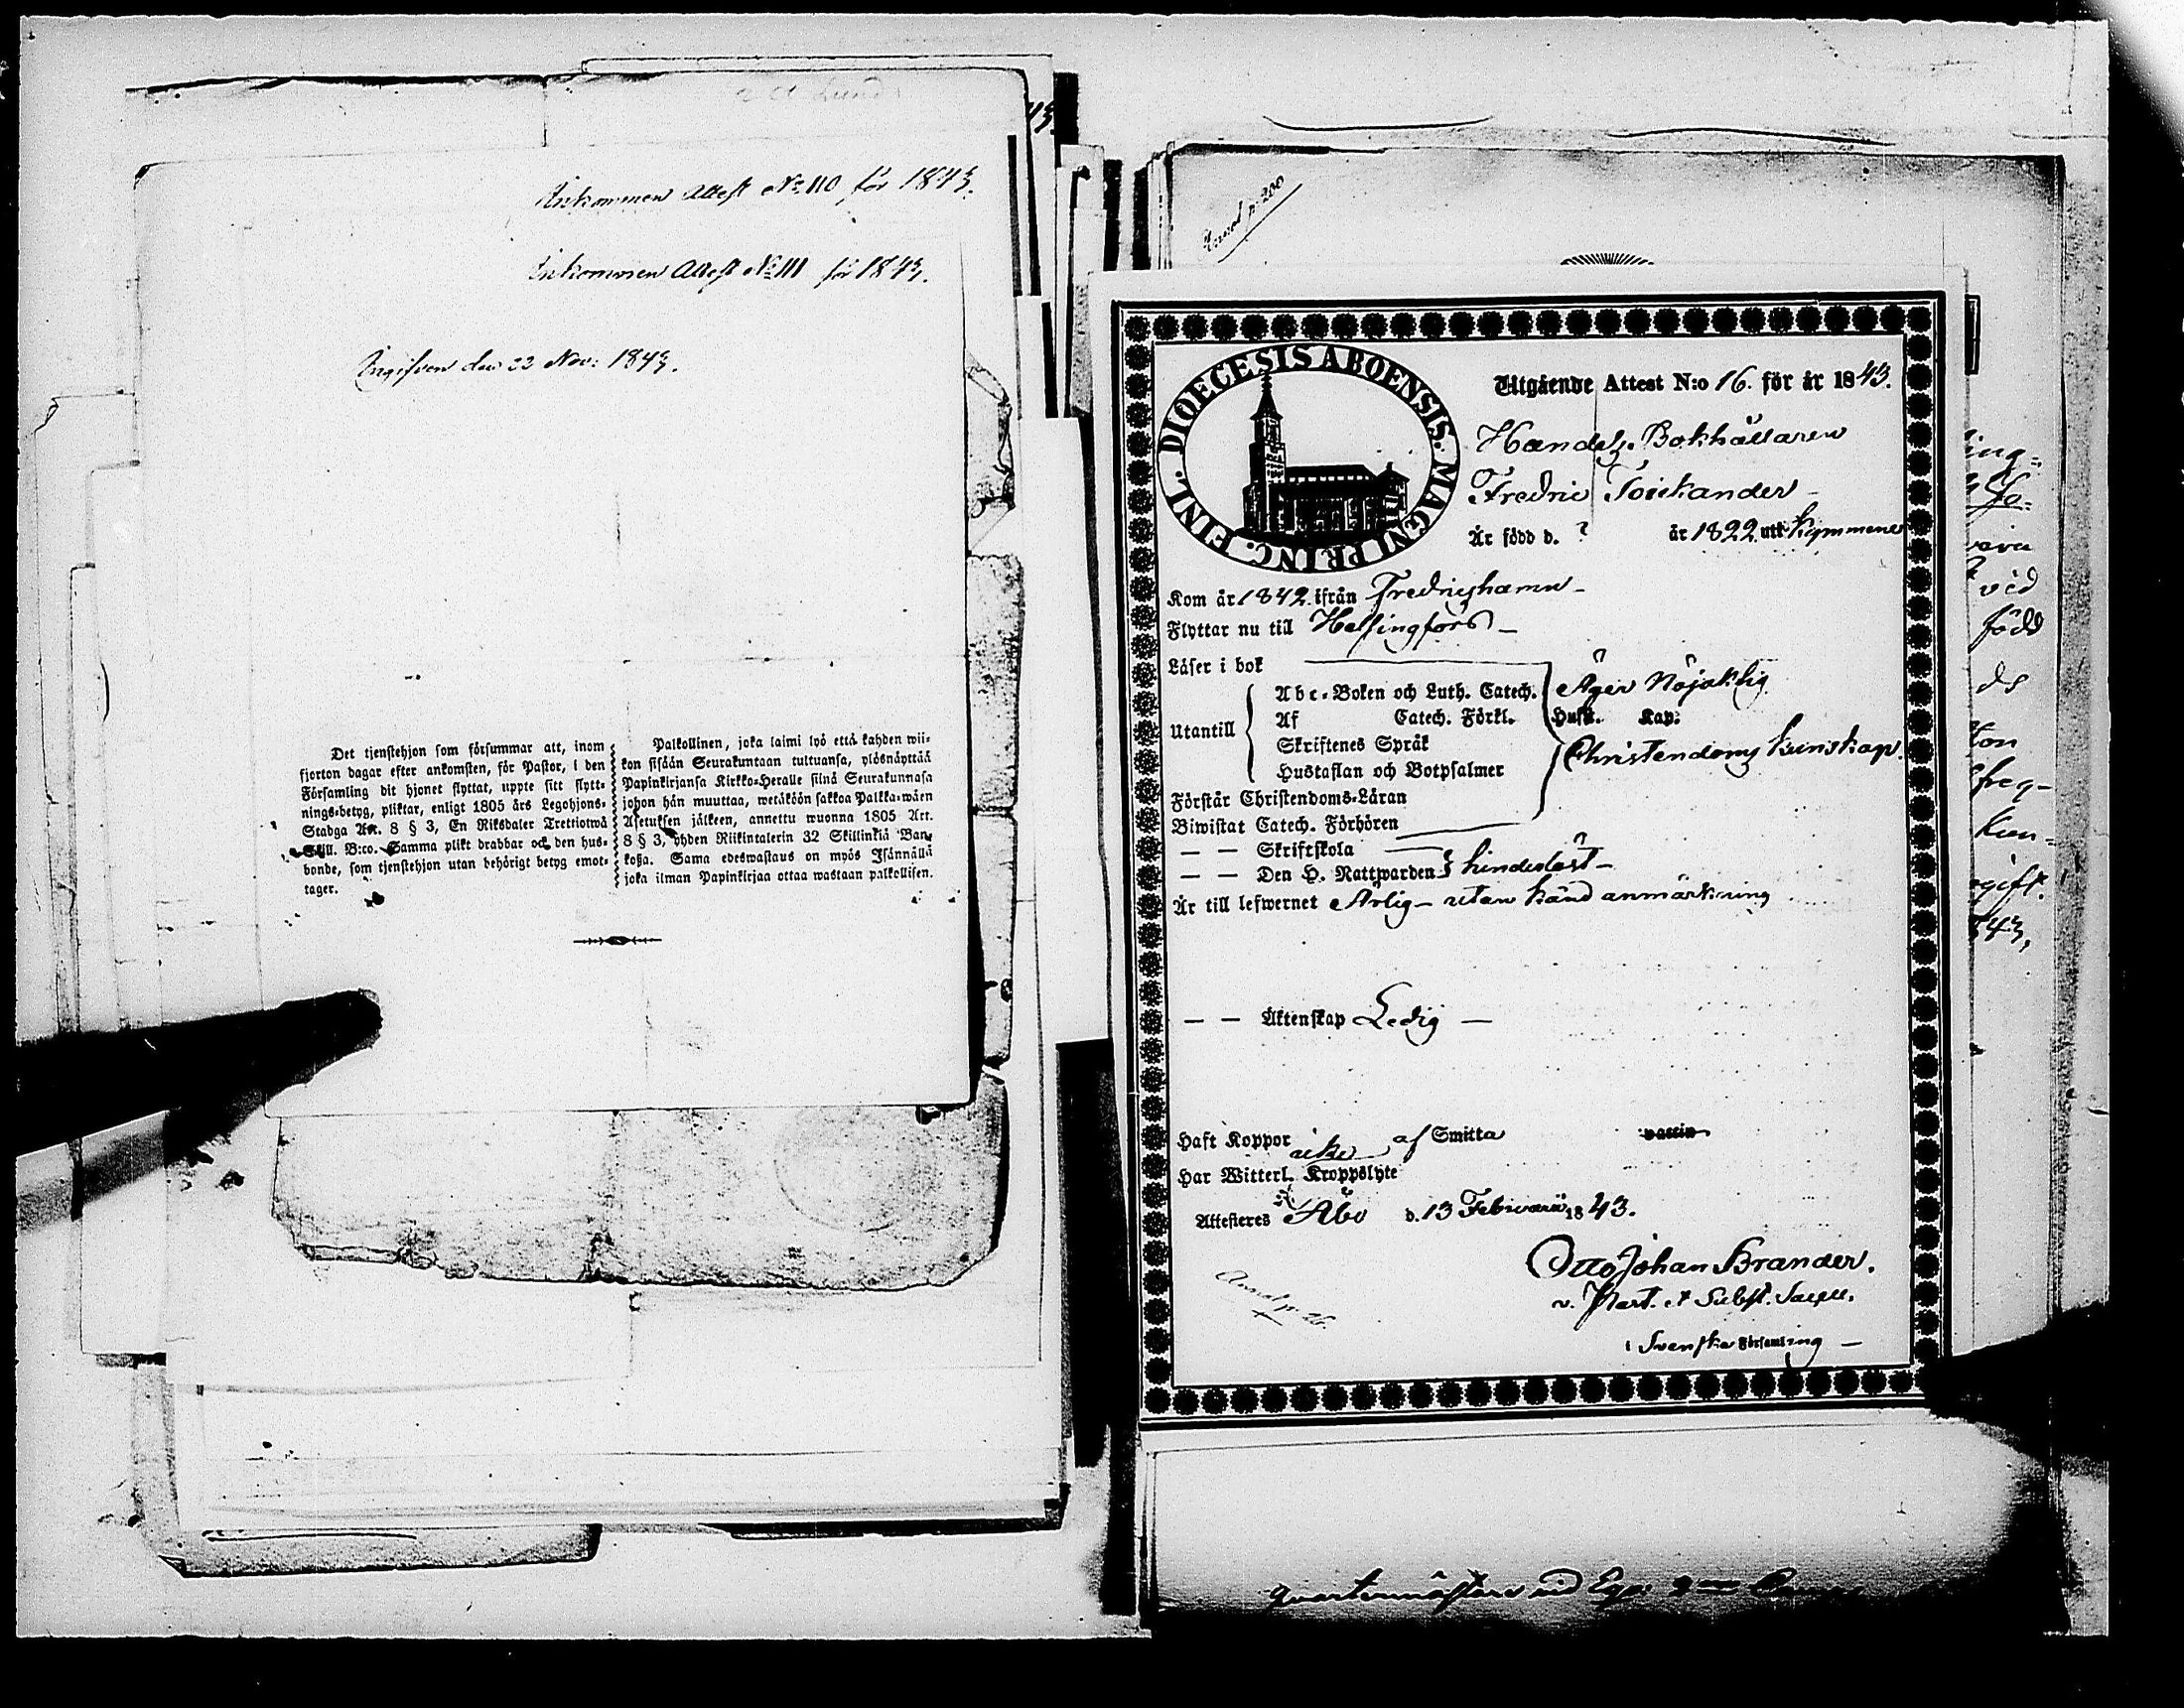 Inkommen Attest No 110 för 1843.
Inkommen Attest No 111 för 1843.
Ingifven den 22 Nov: 1843.
Det tjenstehjon som försummar att, inom
fjorton dagar efter ankomsten, för Pastor, i den
Församling dit hjonet flyttat, uppte sitt flytt-
nings-betyg, pliktar, enligt 1805 års Legohjons-
Stadga Art. 8 § 3, En Riksdaler Trettiotwå
Skill. B:co. Samma plikt drabbar ock den hus-
bonde, som tjenstehjon utan behörigt betyg emot-
tager.
Palkollinen, joka laimi lyö että kahden wii-
kon sisään Seurakuntaan tultuansa, ylösnäyttää
Papinkirjansa Kirkko-Heralle siinä Seurakunnasa
johon hän muuttaa, wetäköön sakkoa Palkka-wäen
Asetuksen jälkeen, annettu wuonna 1805 Art.
8 § 3, yhden Riikintalerin 32 Skillinkiä Ban-
koßa. Sama edeswastaus on myös Isännällä
joka ilman Papinkirjaa ottaa wastaan palkollisen.
p. 200
DIOECESIS ABOENSIS. MAGNI PRINC. FINL.
Utgående Attest N:o 16. för år 1843.
Handels Bokhållaren
Fredric Toickander
Är född d. ? år 1822 uti Kymmene
Kom år 1842 ifrån Fredrichamn
Flyttar nu till Helsingfors
Läser i bok
Abc-Boken och Luth. Catech.
Äger Nöjaktig
Utantill
Af Catech. Förkl. Huft. Kap:
Skriftenes Språk
Hustaflan och Botpsalmer
Christendoms kunskap.
Förstår Christendoms-Läran
Biwistat Catech. Förhören
— — Skriftskola
— — Den H. Nattwarden hindeslöst
Är till lefwernet Ärlig - utan känd anmärkning
— — Äktenskap Ledig
Haft Koppor icke af Smitta vaccin
Har Witterl. Kroppslyte
Attesteres Åbo d. 13 Februarii 1843.
Otto Johan Brander.
v. Past. et Subst. Sacell.
i Svenska Församling
ing-
vid
född
ds
ton
Kun-
43,